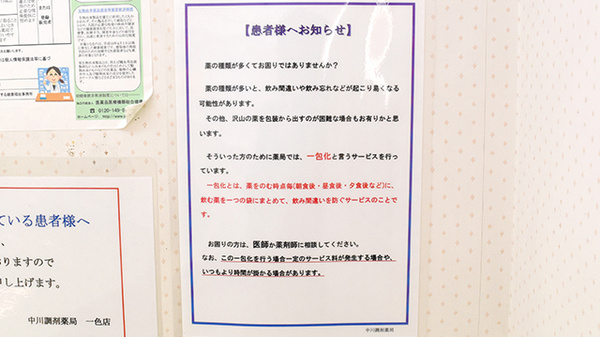 【患者様へお知らせ】
薬の種類が多くてお困りではありませんか？
薬の種類が多いと、飲み間違いや飲み忘れなどが起こり易くなる
可能性があります。
その他、沢山の薬を包装から出すのが困難な場合もお有りかと思
います。
そういった方のために薬局では、一包化と言うサービスを行っ
ています。
一包化とは、薬をのむ時点毎(朝食後・昼食後・夕食後など)に、
飲む薬を一つの袋にまとめて、飲み間違いを防ぐサービスのことで
す。
お困りの方は、医師か薬剤師に相談してください。
なお、この一包化を行う場合一定のサービス料が発生する場合や、
いつもより時間が掛かる場合があります。
中川調剤薬局
ている患者様へ
おりますので
し上げます。
中川調剤薬局 一色店